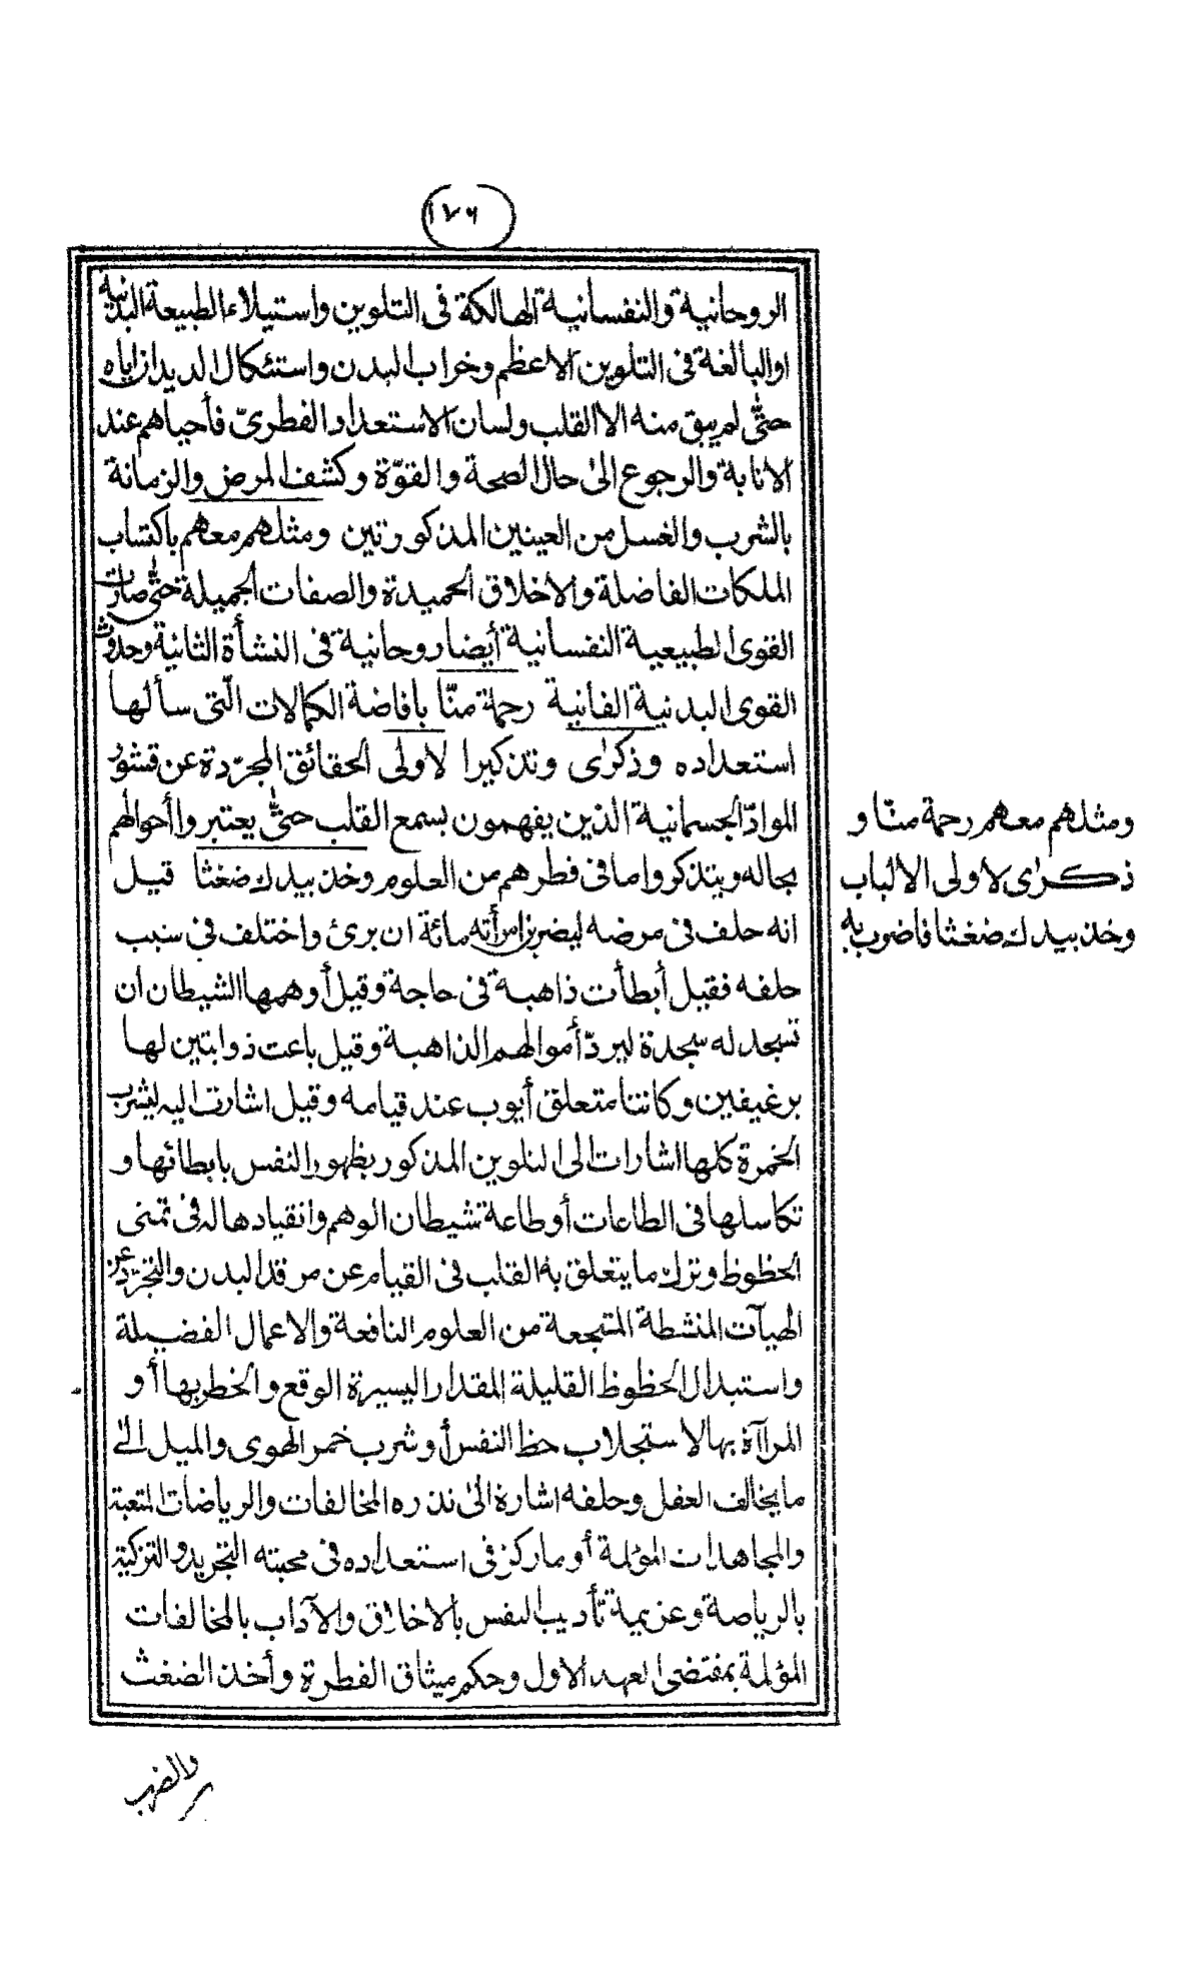 ١٧٦
الروحانية والنفسانية الهالكة فى التلوين واستيلاء الطبيعة البدنية
اوالبالغة فى التلوين الاعظم وخراب البدن واستئكال الديدان اياه
حتّى لم يبق منه الا القلب ولسان الاستعداد الفطرىّ فأحياهم عند
الانابة والرجوع الى حال الصحة والقوّة وكشف المرض والزمانة
بالشرب والغسل من العينين المذكورتين ومثلهم معهم باكتساب
الملكات الفاضلة والاخلاق الحميدة والصفات الجميلة حتّى صارت
القوى الطبيعية النفسانية أيضا روحانية فى النشأة الثانية وحدوث
القوى البدنية الفانية رحمة منّا بافاضة الكمالات الّتى سألها
استعداده وذكرى وتذكيرا لاولى الحقائق المجرّدة عن قشور
الموادّ الجسمانية الذين يفهمون بسمع القلب حتّى يعتبروا أحوالهم
بحاله ويتذكروا ما فى فطرهم من العلوم وخذ بيدك ضغثا قيل
انه حلف فى مرضه ليضربن امرأته مائة ان برئ واختلف فى سبب
حلفه فقيل أبطأت ذاهبة فى حاجة وقيل أوهمها الشيطان ان
تسجد له سجدة ليردّ أموالهم الذاهبة وقيل باعت ذوابتين لها
برغيفين وكانتا متعلق أيوب عند قيامه وقيل اشارت اليه ليشرب
الخمرة كلها اشارات الى التلوين المذكور بظهور النفس بابطائها و
تكاسلها فى الطاعات أوطاعة شيطان الوهم وانقيادها له فى تمنى
الحظوظ وترك ما يتعلق به القلب فى القيام عن مرقد البدن والتجرّد عن
الهيآت المنشطة المتبجعة من العلوم النافعة والاعمال الفضيلة
واستبدال الحظوظ القليلة المقدار اليسيرة الوقع والخطر بها أو
المراآة بها لاستجلاب حظ النفس أوشرب خمر الهوى والميل الى
ما يخالف العقل وحلفه اشارة الى نذره المخالفات والرياضات المتعبة
والمجاهدات المؤلمة أوماركز فى استعداده فى محبته التجريد والتزكية
بالرياضة وعزيمة تأديب النفس بالاخلاق والآداب بالمخالفات
المؤلمة بمقتضى العهد الاول وحكم ميثاق الفطرة وأخذ الضغث
ومثلهم معهم رحمة منّا و
ذكرى لاولى الالباب
وخذ بيدك ضغثا فاضرب به
والضرب